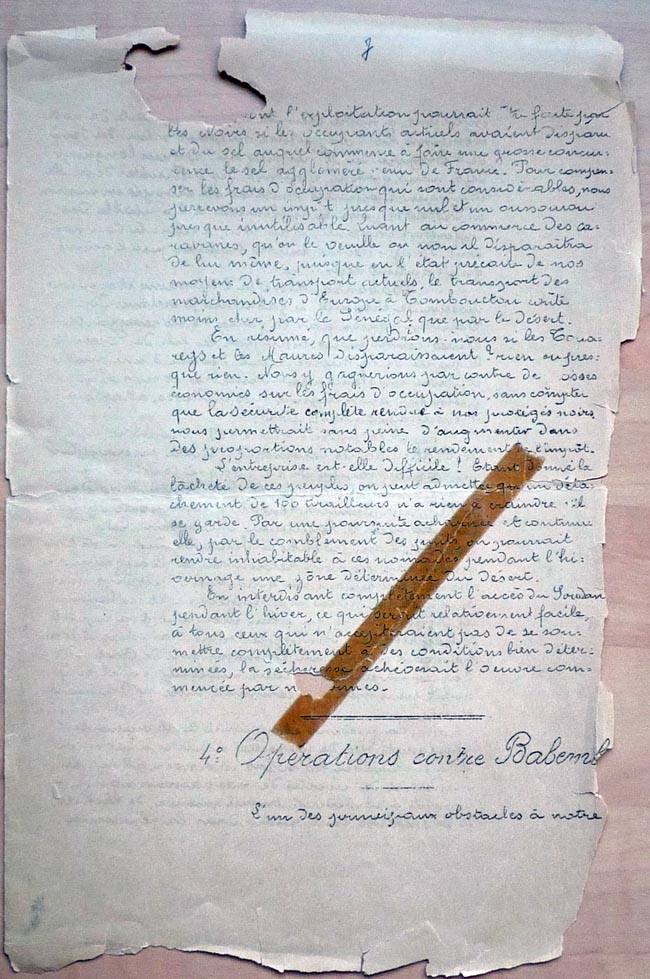 dont l'exploitation pourrait être faite par
les noirs si les occupants actuels avaient disparu
et du sel auquel commence à faire une grosse concur-
rence le sel aggloméré venu de France. Pour compen-
ser les frais d'occupation qui sont considérables, nous
percevons un impôt presque nul et un oussourou
presque inutilisable. Quant au commerce des ca-
ravanes, qu'on le veuille ou non il disparaîtra
de lui même, puisque en l'état précaire de nos
moyens de transport actuels, le transport des
marchandises d'Europe à Tombouctou coûte
moins cher par le Sénégal que par le désert.
En résumé, que perdrions-nous si les Toua-
regs et les Maures disparaissaient ? rien ou pres-
que rien. Nous y gagnerions par contre de osses
économies sur les frais d'occupation, sans compter
que la sécurité complète rendue à nos protégés noirs
nous permettrait sans peine d'augmenter dans
des proportions notables le rendement de l'impôt.
L'entreprise est-elle difficile ! Etant donnée la
lâcheté de ces peuples, on peut admettre qu'un déta-
chement de 150 tirailleurs n'a rien à craindre s'il
se garde. Par une poursuite acharnée et continu
elle, par le comblement des puits, on pourrait
rendre inhabitable à ces nomades pendant l'hi-
vernage une zône déterminée du désert.
En interdisant complètement l'accès du Soudan
pendant l'hiver, ce qui serait relativement facile,
à tous ceux qui n'accepteraient pas de se sou-
mettre complètement à des conditions bien déter-
minées, la sécheresse achèverait l'oeuvre com-
mencée par n armes.
4° Opérations contre Babemb
L'un des principaux obstacles à notre